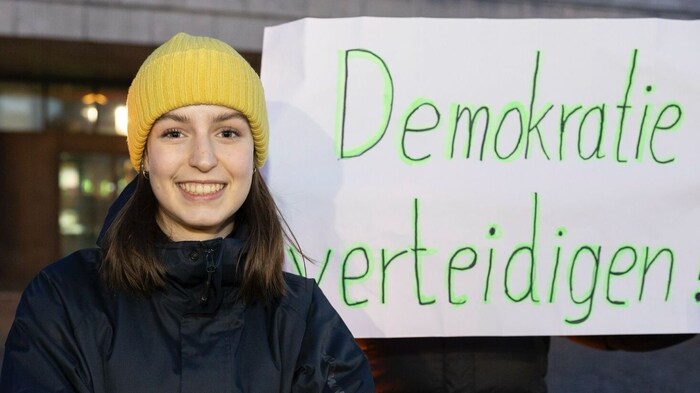 Demokratie
verteidigen!